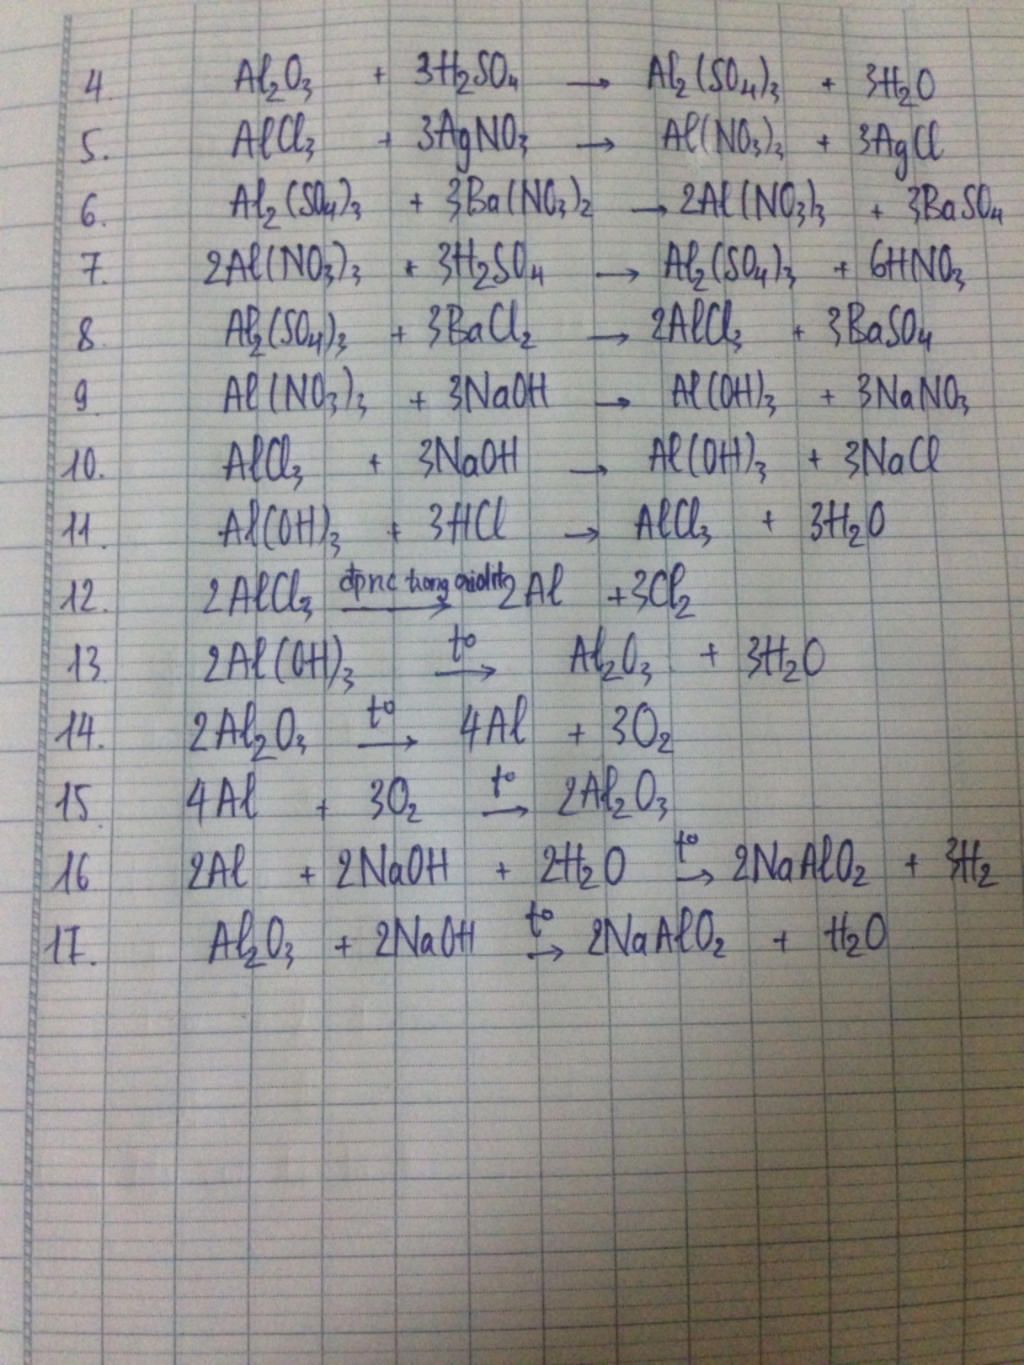 4. Al₂O₃ + 3H₂SO₄ → Al₂(SO₄)₃ + 3H₂O
5. AlCl₃ + 3AgNO₃ → Al(NO₃)₃ + 3AgCl
6. Al₂(SO₄)₃ + 3Ba(NO₃)₂ → 2Al(NO₃)₃ + 3BaSO₄
7. 2Al(NO₃)₃ + 3H₂SO₄ → Al₂(SO₄)₃ + 6HNO₃
8. Al₂(SO₄)₃ + 3BaCl₂ → 2AlCl₃ + 3BaSO₄
9. Al(NO₃)₃ + 3NaOH → Al(OH)₃ + 3NaNO₃
10. AlCl₃ + 3NaOH → Al(OH)₃ + 3NaCl
11. Al(OH)₃ + 3HCl → AlCl₃ + 3H₂O
12. 2AlCl₃ đpnc trong → 2Al + 3Cl₂
13. 2Al(OH)₃ t° → Al₂O₃ + 3H₂O
14. 2Al₂O₃ t° → 4Al + 3O₂
15. 4Al + 3O₂ t° → 2Al₂O₃
16 2Al + 2NaOH + 2H₂O t° → 2NaAlO₂ + 3H₂
17. Al₂O₃ + 2NaOH t° → 2NaAlO₂ + H₂O